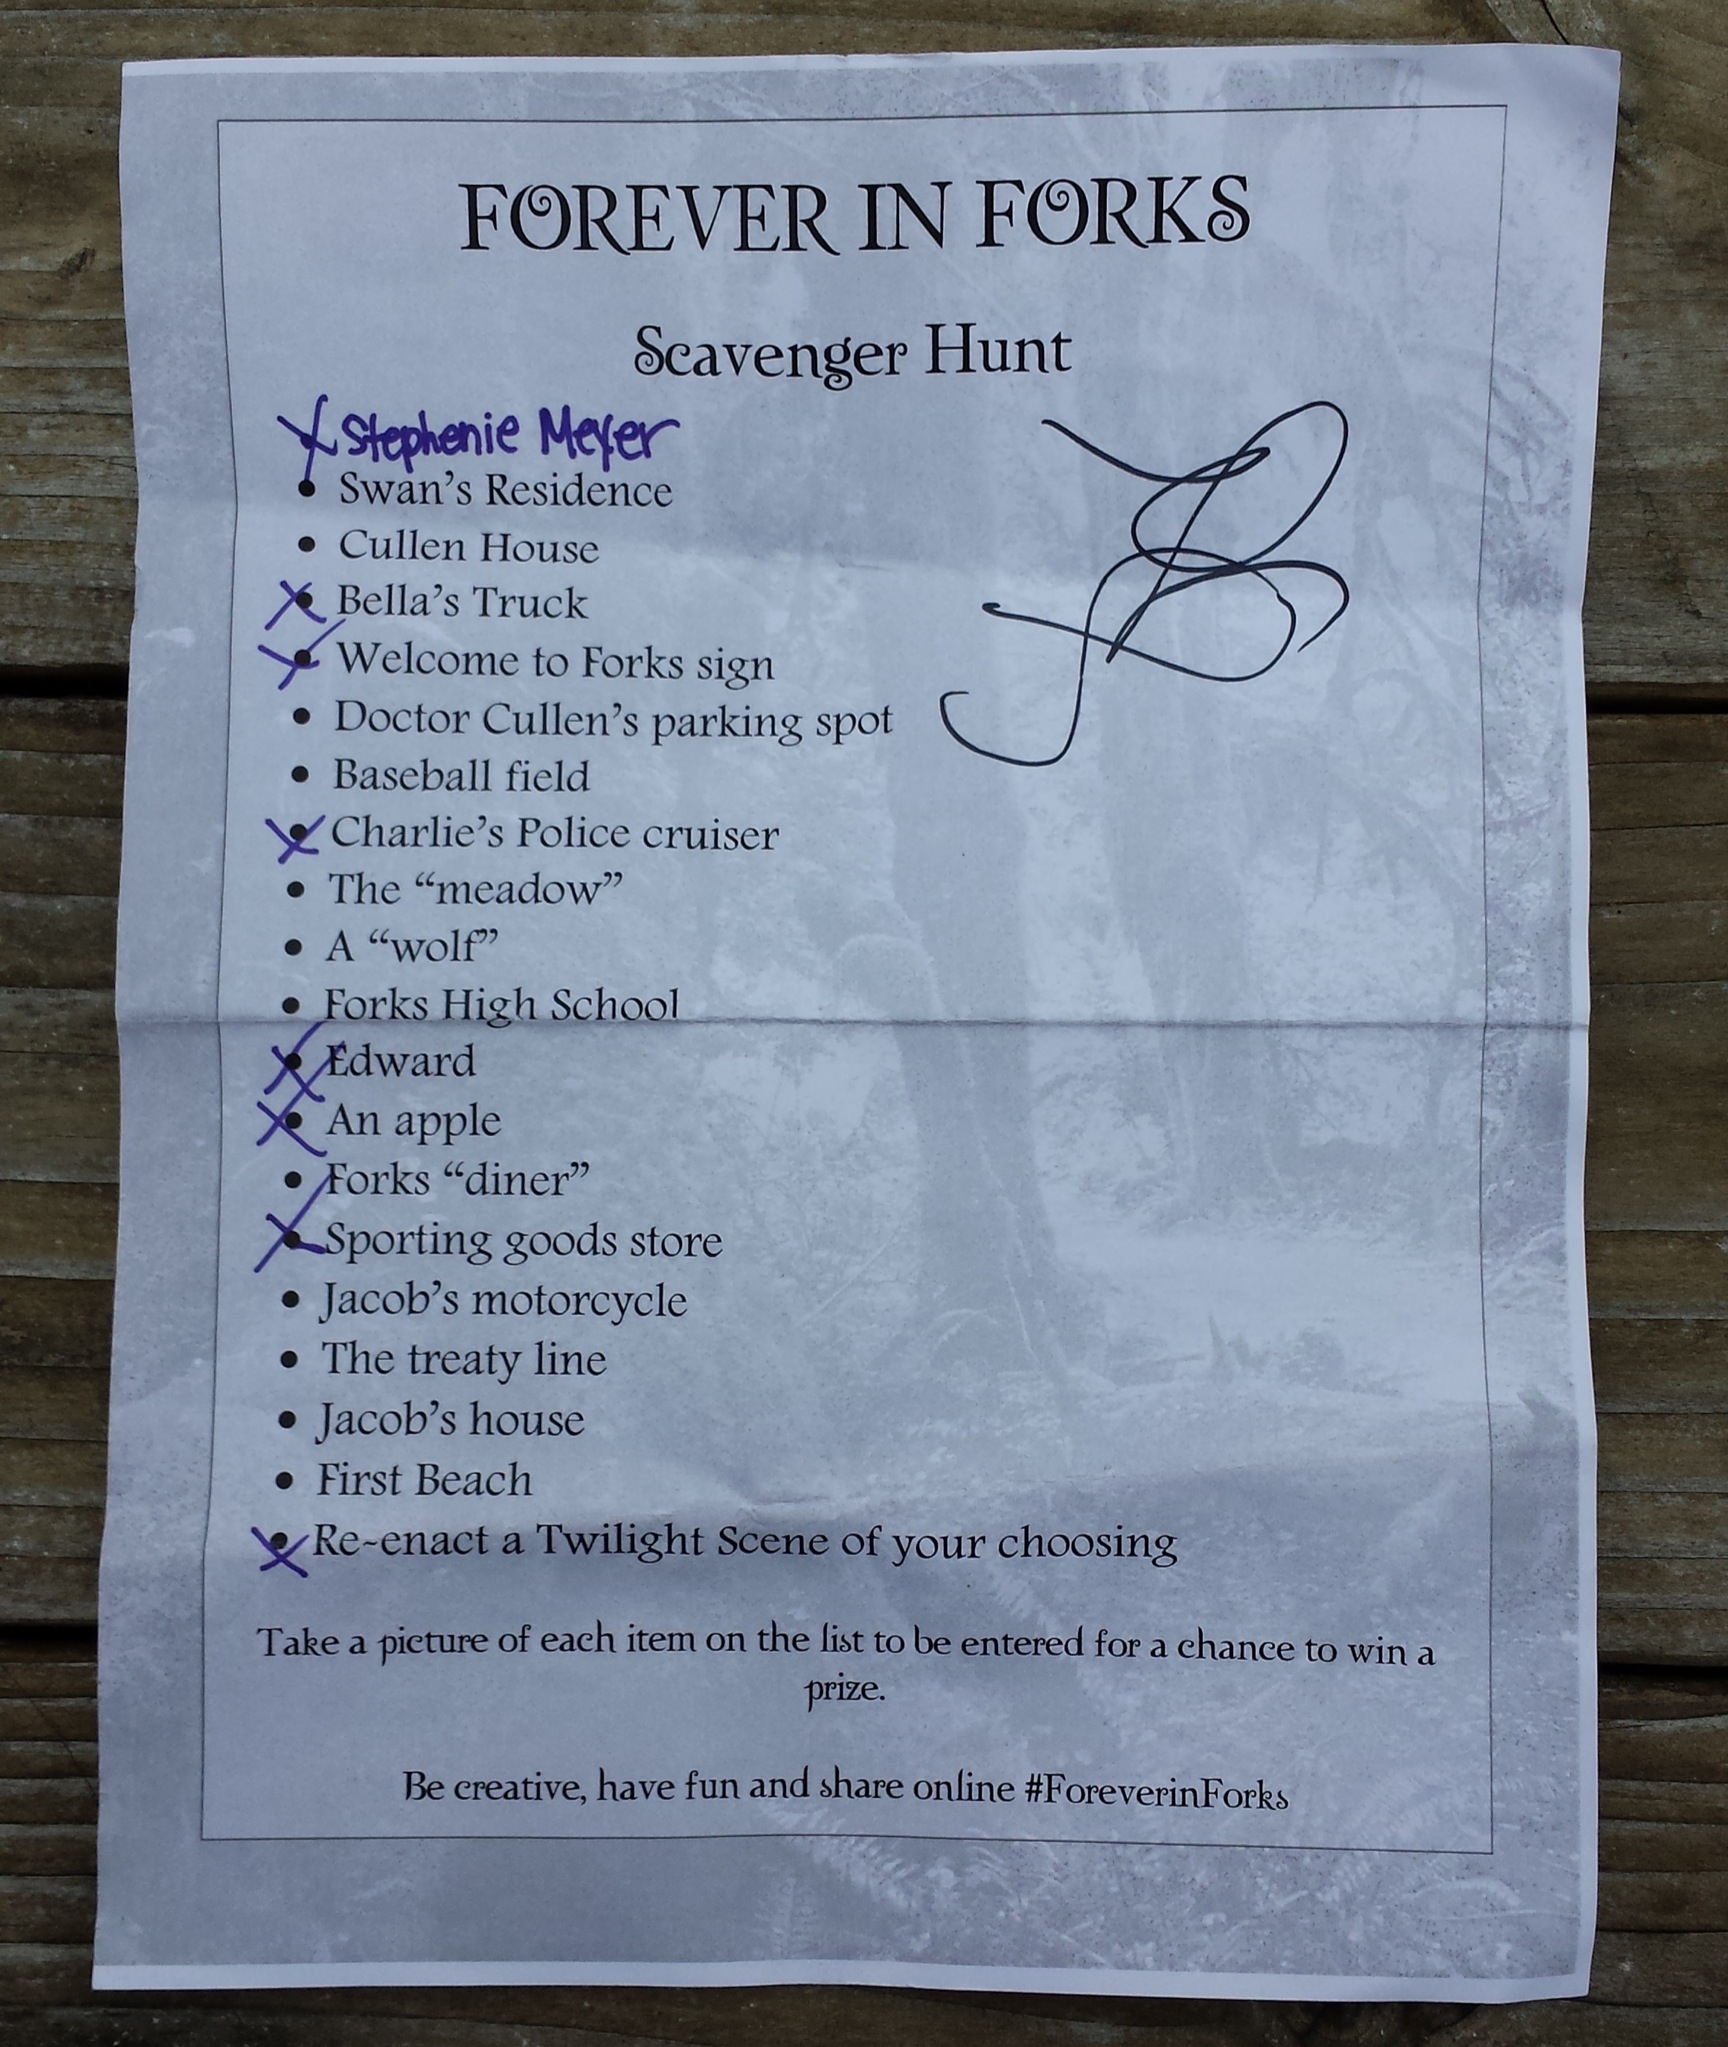 FOREVER IN FORKS
Scavenger Hunt
Stephenie Meyer
• Swan's Residence
• Cullen House
• Bella's Truck
• Welcome to Forks sign
• Doctor Cullen's parking spot
• Baseball field
• Charlie's Police cruiser
• The “meadow”
• A “wolf”
• Forks High School
• Edward
• An apple
• Forks “diner”
• Sporting goods store
• Jacob's motorcycle
• The treaty line
• Jacob's house
• First Beach
• Re-enact a Twilight Scene of your choosing
Take a picture of each item on the list to be entered for a chance to win a
prize.
Be creative, have fun and share online #ForeverinForks